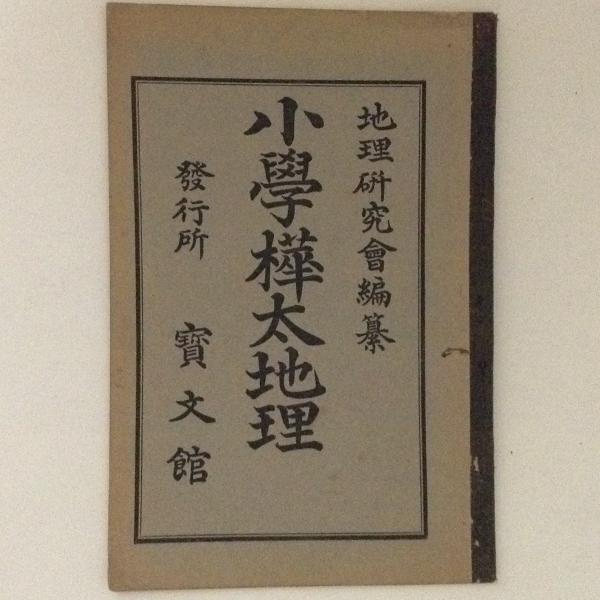 地理硏究會編纂
小學樺太地理
發行所 寶文館